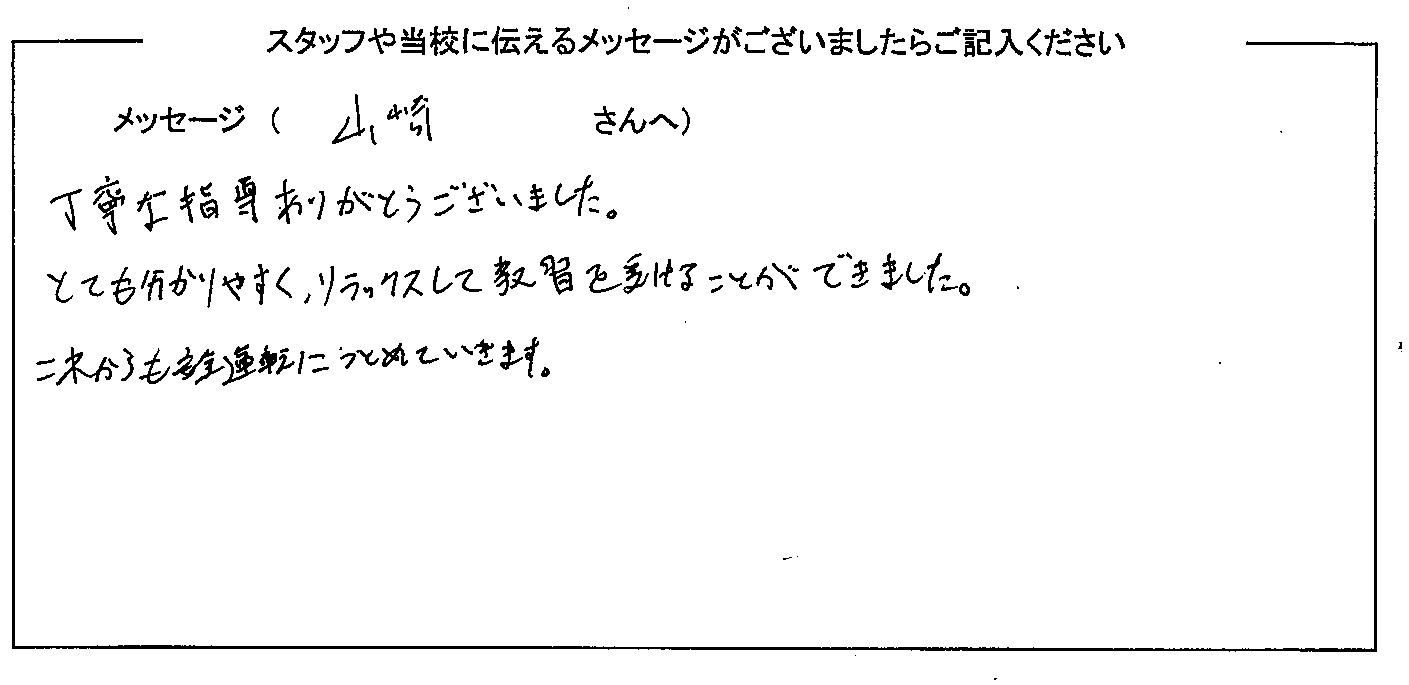 スタッフや当校に伝えるメッセージがございましたらご記入ください
メッセージ ( 山崎 さんへ)
丁寧な指導ありがとうございました。
とても分かりやすく、リラックスして教習を受けることができました。
これからも安全運転につとめていきます。